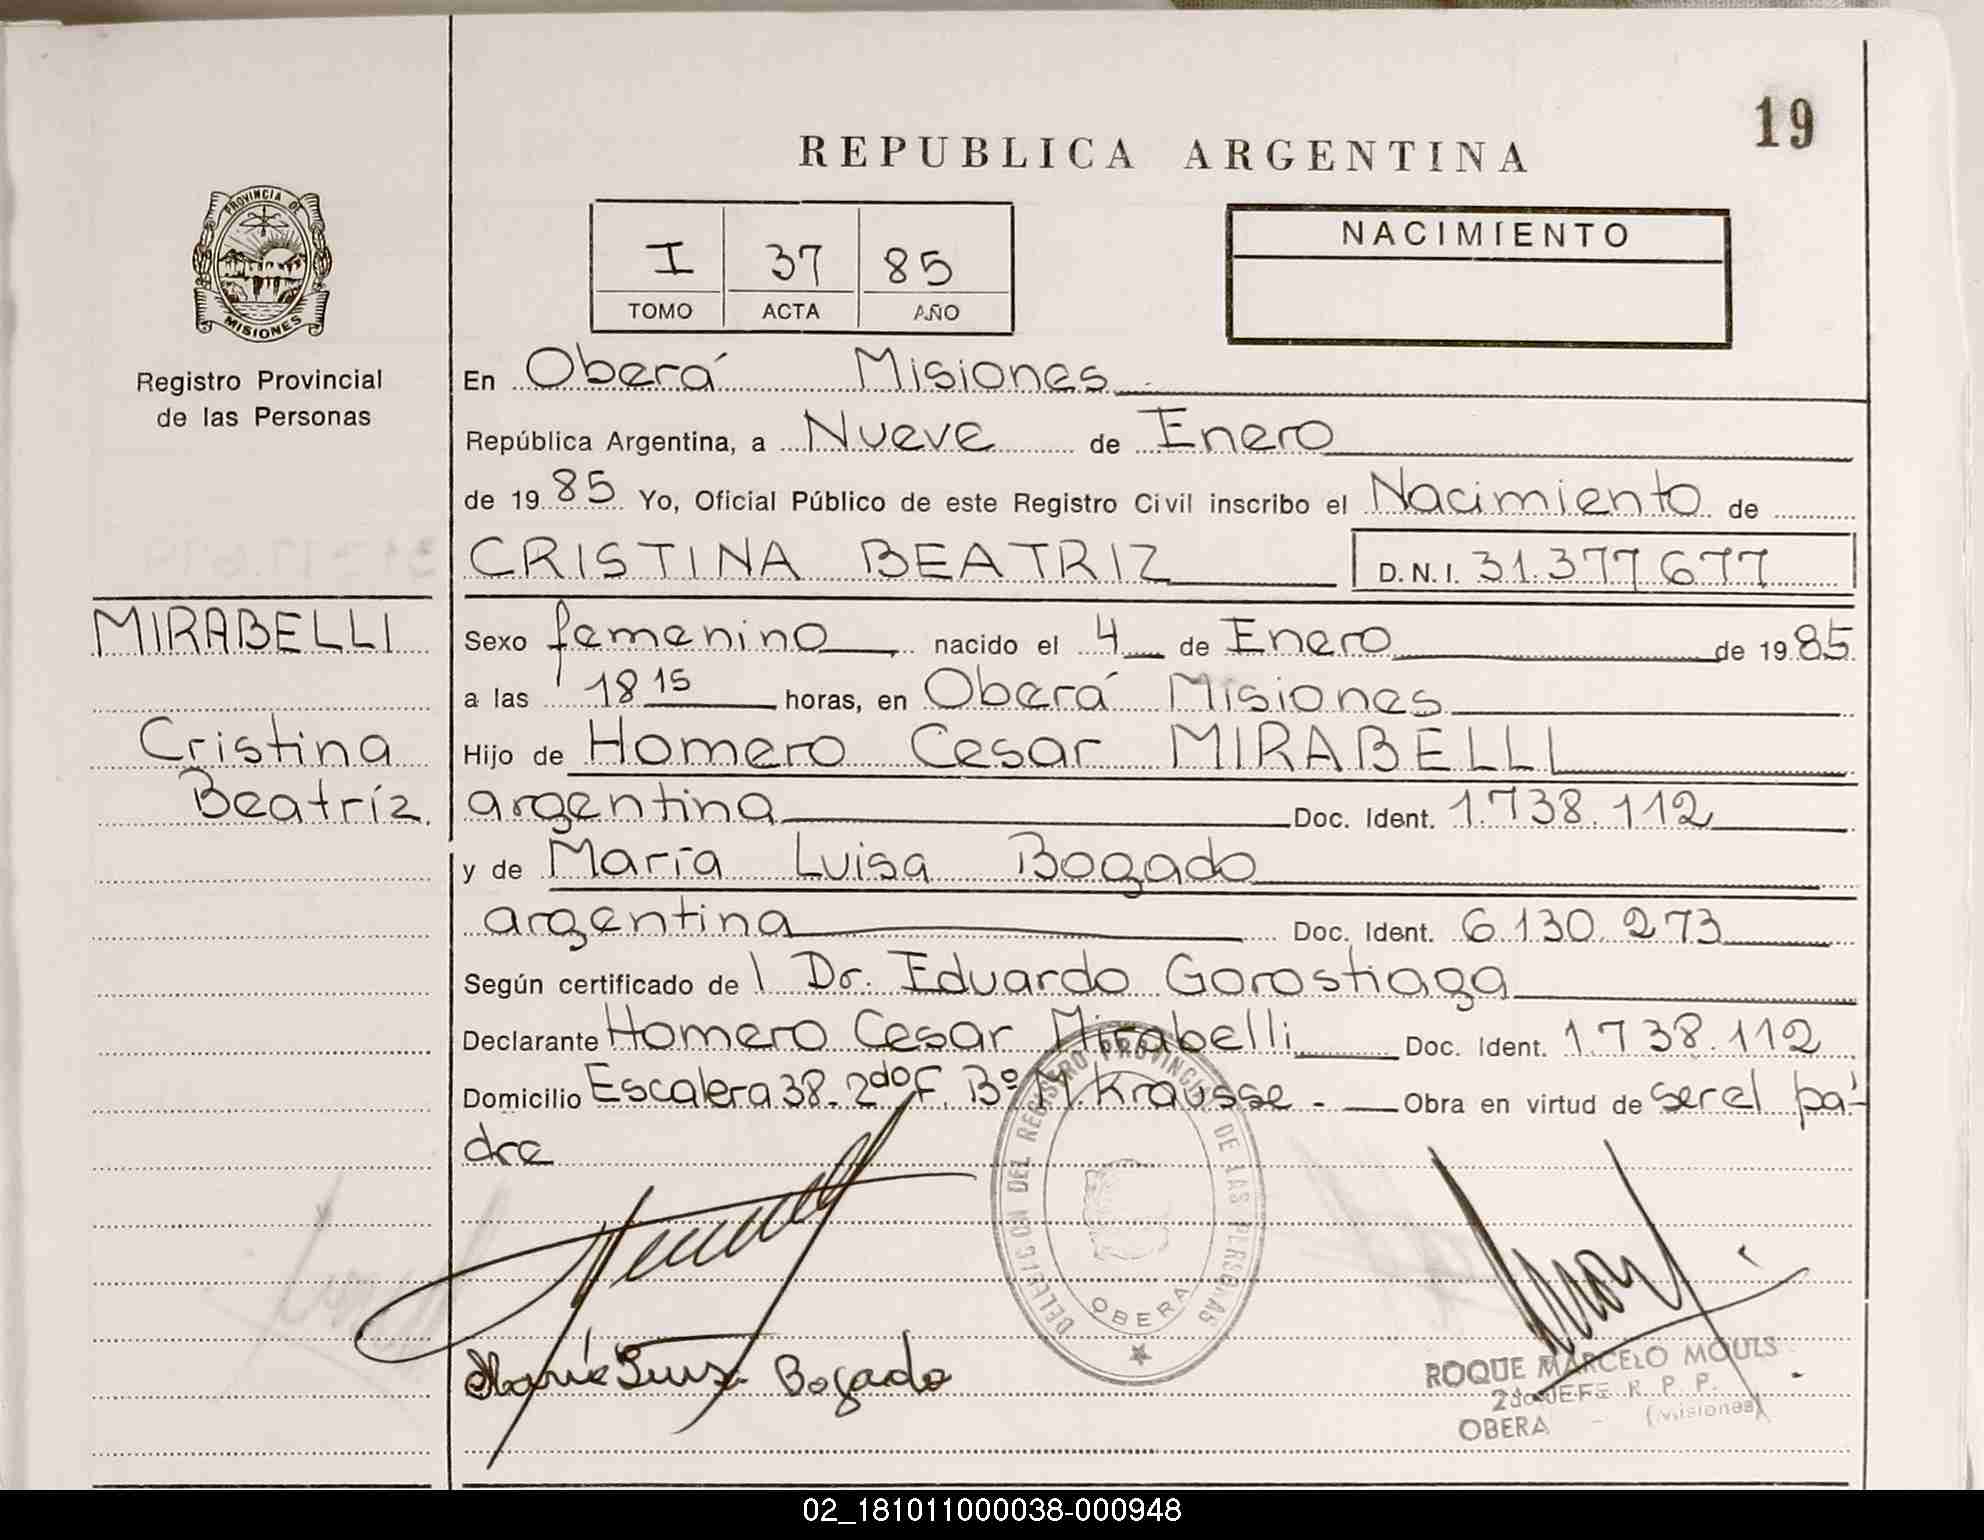 19
REPUBLICA ARGENTINA
PROVINCIA DE
MISIONES
Registro Provincial
de las Personas
I 37 85
TOMO ACTA AÑO
NACIMIENTO
En Oberá Misiones
República Argentina, a Nueve de Enero
de 1985 Yo, Oficial Público de este Registro Civil inscribo el Nacimiento de
CRISTINA BEATRIZ D.N.I. 31.377.677
MIRABELLI
Cristina
Beatríz.
Sexo femenino nacido el 4 de Enero de 1985
a las 18 15 horas, en Oberá Misiones
Hijo de Homero Cesar MIRABELLI
argentina Doc. Ident. 1.738.112
y de María Luisa Bogado
argentina Doc. Ident. 6.130.273
Según certificado de l Dr. Eduardo Gorostiaga
Declarante Homero Cesar Mirabelli Doc. Ident. 1.738.112
Domicilio Escalera 38-2do F. Bº M. Krausse - Obra en virtud de ser el pa-
dre
DELEGACION DEL REGISTRO PROVINCIAL DE LAS PERSONAS
OBERA
María Luisa Bogado
ROQUE MARCELO MOULS
2do JEFE R. P. P.
OBERA - (Misiones)
02_181011000038-000948